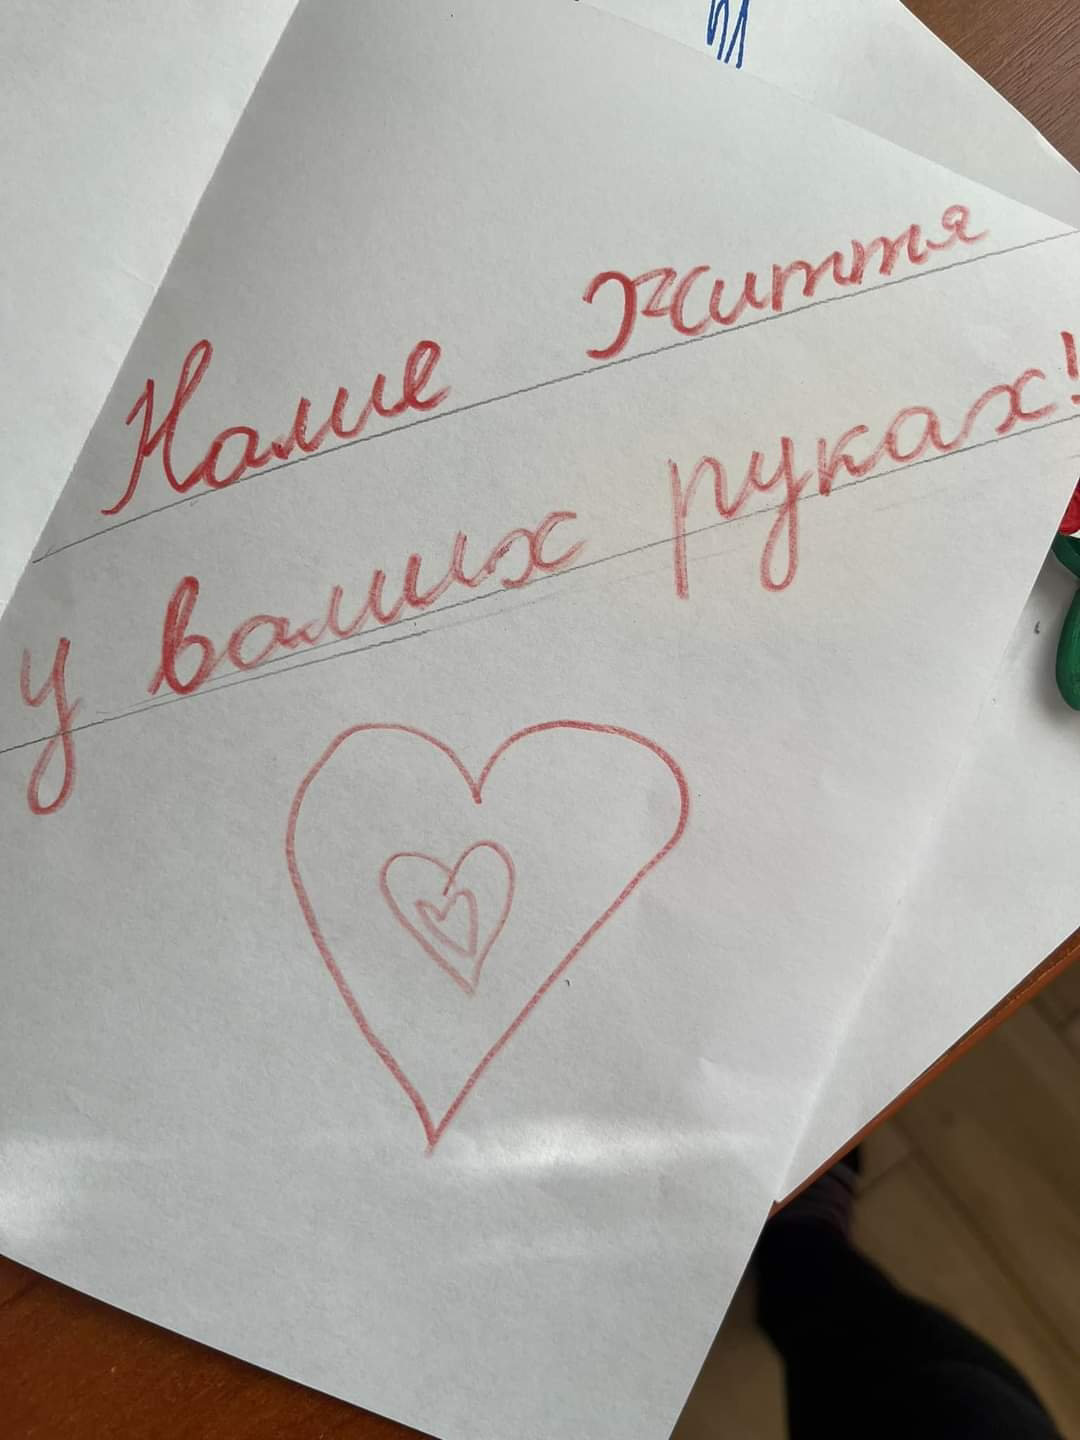 Наше Життя
у ваших руках!